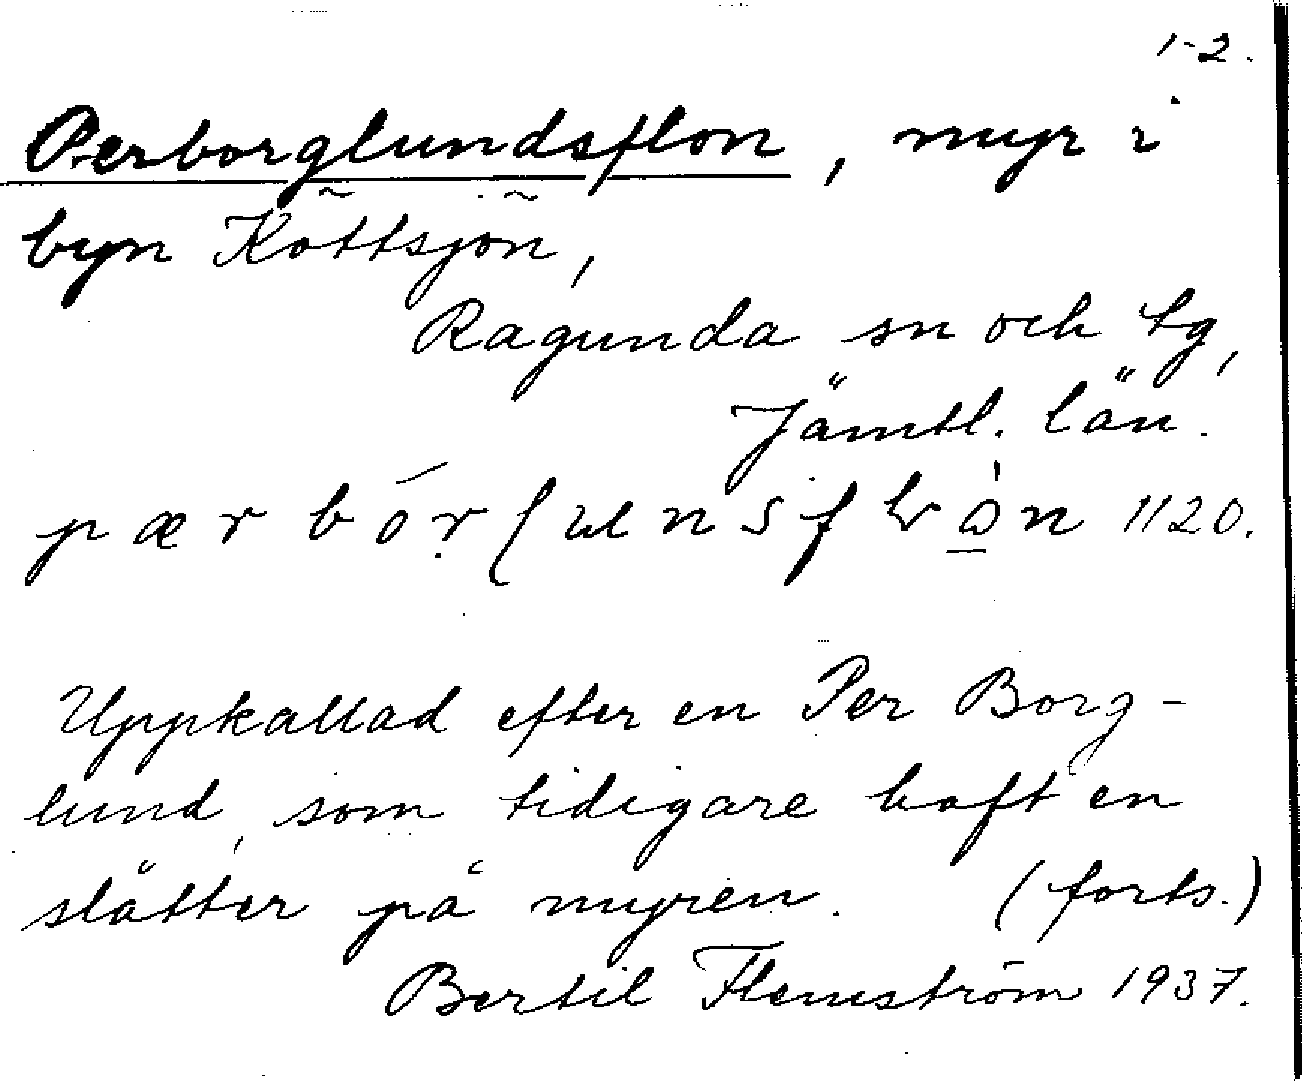 1-2.
Perborglundsflon, myr i
byn Köttsjön,
Ragunda sn och tg,
Jämtl. län.
1120.
Uppkallad efter en Per Borg-
lund, som tidigare haft en
slåtter på myren. (forts.)
Bertil Flemström 1937.